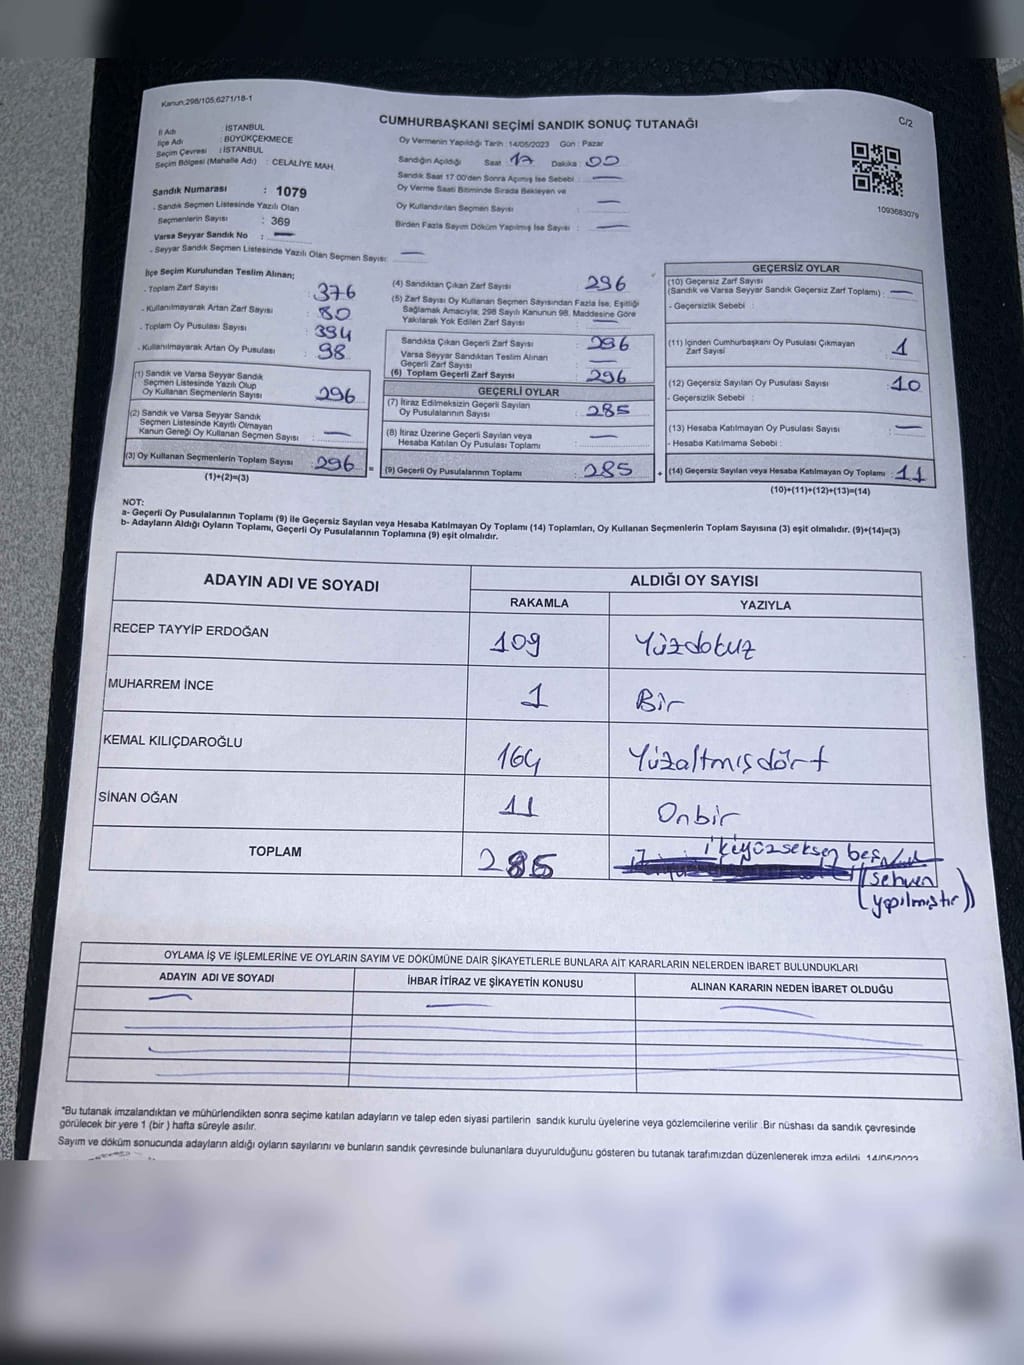 Kanun;298/105;6271/18-1
C/2
CUMHURBAŞKANI SEÇİMİ SANDIK SONUÇ TUTANAĞI
İl Adı : İSTANBUL
İlçe Adı : BÜYÜKÇEKMECE
Seçim Çevresi : İSTANBUL
Seçim Bölgesi (Mahalle Adı) : CELALİYE MAH.
Sandık Numarası : 1079
- Sandık Seçmen Listesinde Yazılı Olan
Seçmenlerin Sayısı : 369
Varsa Seyyar Sandık No : —
- Seyyar Sandık Seçmen Listesinde Yazılı Olan Seçmen Sayısı: —
Oy Vermenin Yapıldığı Tarih :14/05/2023 Gün : Pazar
Sandığın Açıldığı Saat 17 Dakika : 00
Sandık Saat 17:00'den Sonra Açılmış İse Sebebi : —
Oy Verme Saati Bitiminde Sırada Bekleyen ve
Oy Kullandırılan Seçmen Sayısı : —
Birden Fazla Sayım Döküm Yapılmış İse Sayısı : —
1093683079
İlçe Seçim Kurulundan Teslim Alınan;
- Toplam Zarf Sayısı : 376
- Kullanılmayarak Artan Zarf Sayısı : 80
- Toplam Oy Pusulası Sayısı : 394
- Kullanılmayarak Artan Oy Pusulası : 98
(1) Sandık ve Varsa Seyyar Sandık
Seçmen Listesinde Yazılı Olup
Oy Kullanan Seçmenlerin Sayısı : 296
(2) Sandık ve Varsa Seyyar Sandık
Seçmen Listesinde Kayıtlı Olmayan
Kanun Gereği Oy Kullanan Seçmen Sayısı : —
(3) Oy Kullanan Seçmenlerin Toplam Sayısı : 296 =
(1)+(2)=(3)
(4) Sandıktan Çıkan Zarf Sayısı : 296
(5) Zarf Sayısı Oy Kullanan Seçmen Sayısından Fazla İse, Eşitliği
Sağlamak Amacıyla; 298 Sayılı Kanunun 98. Maddesine Göre
Yakılarak Yok Edilen Zarf Sayısı : —
Sandıkta Çıkan Geçerli Zarf Sayısı : 296
Varsa Seyyar Sandıktan Teslim Alınan
Geçerli Zarf Sayısı : —
(6) Toplam Geçerli Zarf Sayısı : 296
GEÇERLİ OYLAR
(7) İtiraz Edilmeksizin Geçerli Sayılan
Oy Pusulalarının Sayısı : 285
(8) İtiraz Üzerine Geçerli Sayılan veya
Hesaba Katılan Oy Pusulası Toplamı : —
(9) Geçerli Oy Pusulalarının Toplamı : 285 +
GEÇERSİZ OYLAR
(10) Geçersiz Zarf Sayısı
(Sandık ve Varsa Seyyar Sandık Geçersiz Zarf Toplamı) : —
- Geçersizlik Sebebi :
(11) İçinden Cumhurbaşkanı Oy Pusulası Çıkmayan
Zarf Sayısı : 1
(12) Geçersiz Sayılan Oy Pusulası Sayısı : 10
- Geçersizlik Sebebi :
(13) Hesaba Katılmayan Oy Pusulası Sayısı : —
- Hesaba Katılmama Sebebi :
(14) Geçersiz Sayılan veya Hesaba Katılmayan Oy Toplamı : 11
(10)+(11)+(12)+(13)=(14)
NOT:
a- Geçerli Oy Pusulalarının Toplamı (9) ile Geçersiz Sayılan veya Hesaba Katılmayan Oy Toplamı (14) Toplamları, Oy Kullanan Seçmenlerin Toplam Sayısına (3) eşit olmalıdır. (9)+(14)=(3)
b- Adayların Aldığı Oyların Toplamı, Geçerli Oy Pusulalarının Toplamına (9) eşit olmalıdır.
ADAYIN ADI VE SOYADI ALDIĞI OY SAYISI
RAKAMLA YAZIYLA
RECEP TAYYİP ERDOĞAN 109 Yüzdokuz
MUHARREM İNCE 1 Bir
KEMAL KILIÇDAROĞLU 164 Yüzaltmışdört
SİNAN OĞAN 11 Onbir
TOPLAM 285 ikiyüzseksen beş
(sehven
yapılmıştır)
OYLAMA İŞ VE İŞLEMLERİNE VE OYLARIN SAYIM VE DÖKÜMÜNE DAİR ŞİKAYETLERLE BUNLARA AİT KARARLARIN NELERDEN İBARET BULUNDUKLARI
ADAYIN ADI VE SOYADI İHBAR İTİRAZ VE ŞİKAYETİN KONUSU ALINAN KARARIN NEDEN İBARET OLDUĞU
"Bu tutanak imzalandıktan ve mühürlendikten sonra seçime katılan adayların ve talep eden siyasi partilerin sandık kurulu üyelerine veya gözlemcilerine verilir .Bir nüshası da sandık çevresinde
görülecek bir yere 1 (bir ) hafta süreyle asılır.
Sayım ve döküm sonucunda adayların aldığı oyların sayılarını ve bunların sandık çevresinde bulunanlara duyurulduğunu gösteren bu tutanak tarafımızdan düzenlenerek imza edildi. 14/05/2023